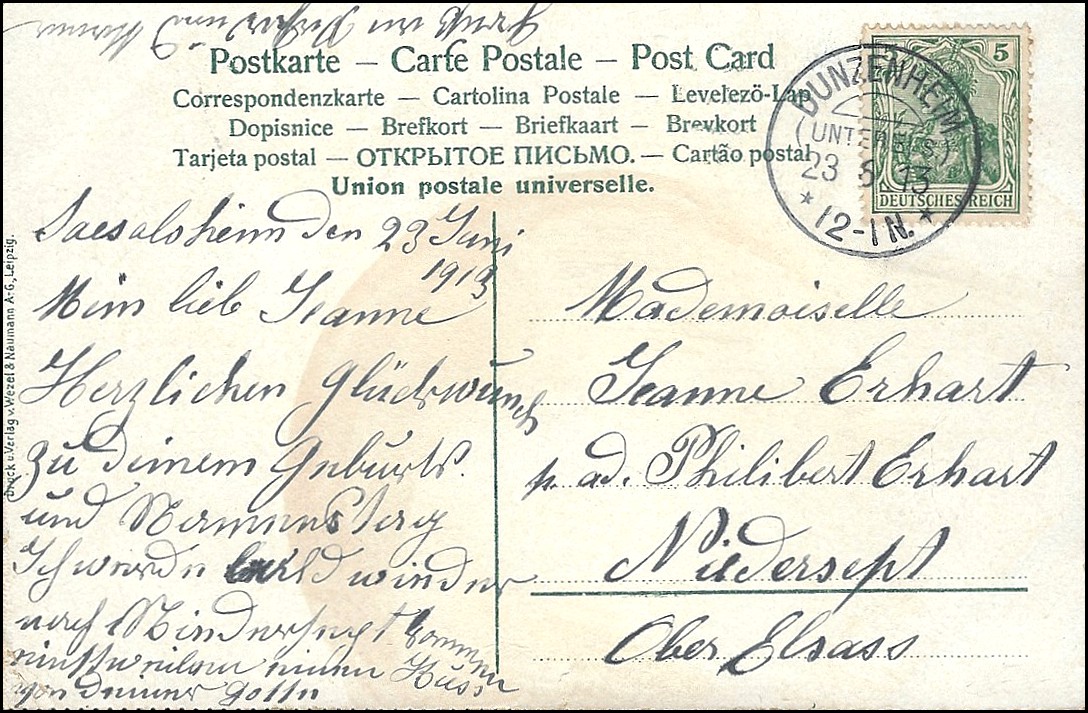 Gruß an
Postkarte — Carte Postale — Post Card
Correspondenzkarte — Cartolina Postale — Levelező-Lap
Dopisnice — Brefkort — Briefkaart — Brevkort
Tarjeta postal — ОТКРЫТОЕ ПИСЬМО. — Cartão postal
Union postale universelle.
5
DEUTSCHES REICH
(UNTER ELS.)
23 6 13
* 12-1 N. *
Druck u. Verlag v. Wezel & Naumann A.-G., Leipzig.
den 23 Juni
1913
Mein lieb Jeanne
Herzlichen Glückwunsch
zu deinem Geburts.
und Namenstag
Ich werde bald wieder
nach Niedersept kommen
einstweilen einen Kuss
von deiner Gotte
Mademoiselle
Jeanne Erhart
p. ad. Philibert Erhart
Niedersept
Ober Elsass